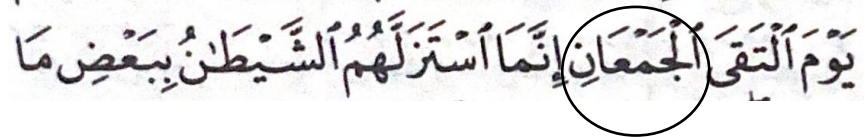 يَوْمَ ٱلْتَقَى ٱلْجَمْعَانِ إِنَّمَا ٱسْتَزَلَّهُمُ ٱلشَّيْطَٰنُ بِبَعْضِ مَا